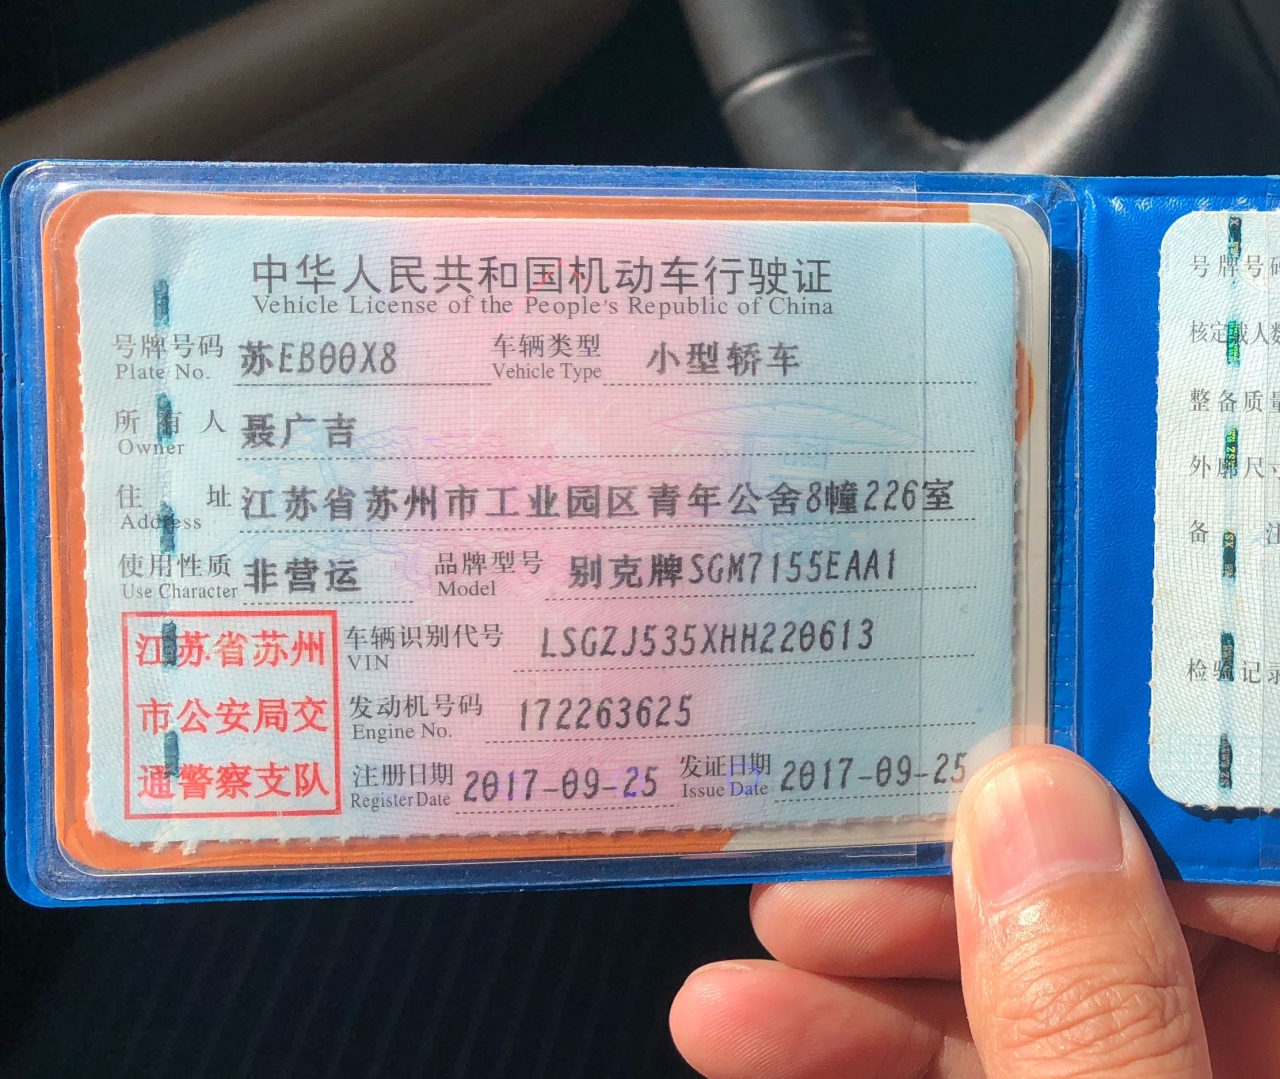 中华人民共和国机动车行驶证
Vehicle License of the People's Republic of China
号牌号码 苏EB00X8 车辆类型 小型轿车
Plate No. Vehicle Type
所有人 聂广吉
Owner
住址 江苏省苏州市工业园区青年公舍8幢226室
Address
使用性质 非营运 品牌型号 别克牌SGM7155EAA1
Use Character Model
江苏省苏州
市公安局交
通警察支队
车辆识别代号 LSGZJ535XHH220613
VIN
发动机号码 172263625
Engine No.
注册日期 2017-09-25 发证日期 2017-09-25
Register Date Issue Date
号牌号码
核定载人数
整备质量
外廓尺寸
备注
检验记录